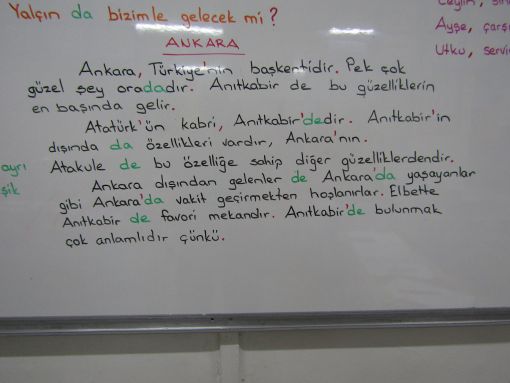 Yalçın da bizimle gelecek mi?
Ayşe, çarşı
Utku, servi
ANKARA
Ankara, Türkiye'nin başkentidir. Pek çok
güzel şey oradadır. Anıtkabir de bu güzelliklerin
en başında gelir.
Atatürk'ün kabri, Anıtkabir'dedir. Anıtkabir'in
dışında da özellikleri vardır, Ankara'nın.
ayrı Atakule de bu özelliğe sahip diğer güzelliklerdendir.
şik Ankara dışından gelenler de Ankara'da yaşayanlar
gibi Ankara'da vakit geçirmekten hoşlanırlar. Elbette
Anıtkabir de favori mekandır. Anıtkabir'de bulunmak
çok anlamlıdır çünkü.